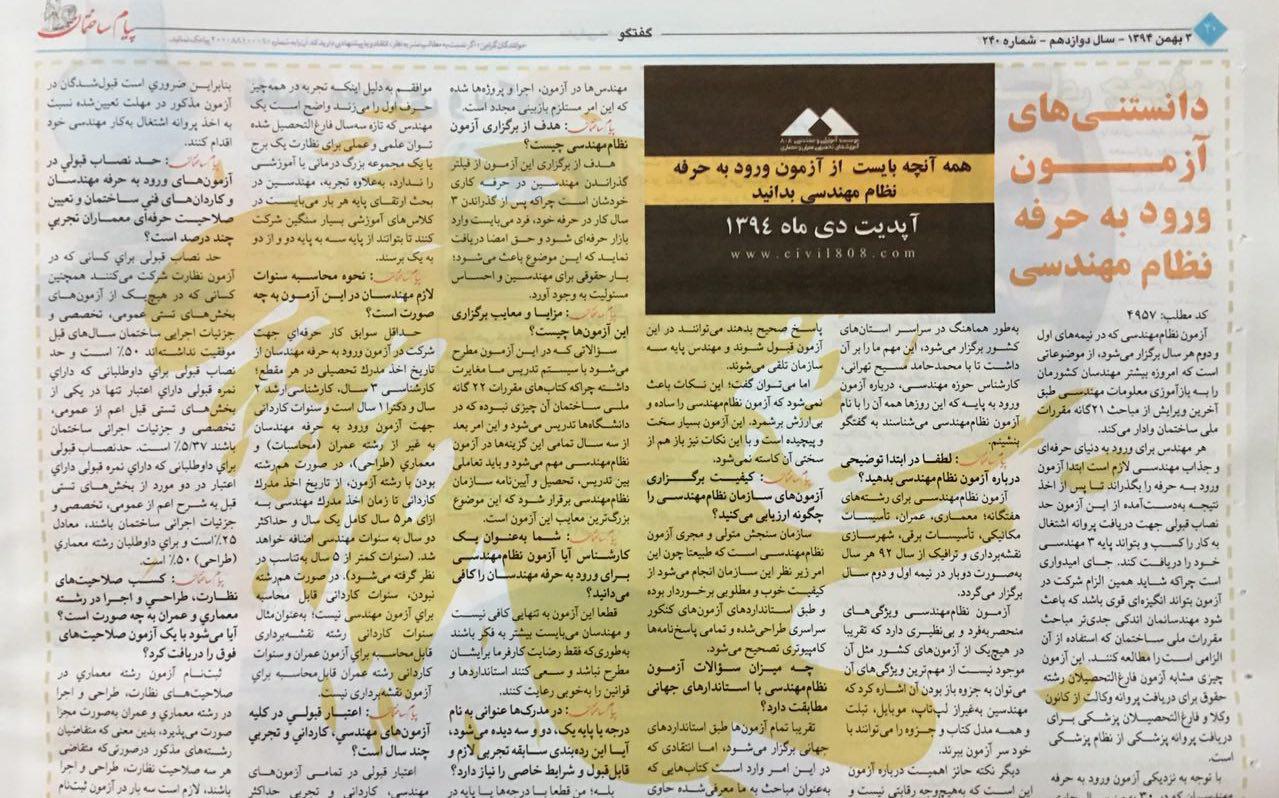 ۲۰
۲ بهمن ۱۳۹۴ - سال دوازدهم - شماره ۲۴۰
گفتگو
پیام ساختمان
دانستنی‌های
آزمون
ورود به حرفه
نظام مهندسی
همه آنچه بایست از آزمون ورود به حرفه
نظام مهندسی بدانید
آپدیت دی ماه ۱۳۹٤
www.civil808.com
کد مطلب: ۴۹۵۷
آزمون نظام‌مهندسی که در نیمه‌های اول
و دوم هر سال برگزار می‌شود، از موضوعاتی
است که امروزه بیشتر مهندسان کشورمان
را به بازآموزی معلومات مهندسی طبق
آخرین ویرایش از مباحث ۲۱گانه مقررات
ملی ساختمان وادار می‌کند.
هر مهندس برای ورود به دنیای حرفه‌ای
و جذاب مهندسی لازم است ابتدا آزمون
ورود به حرفه را بگذراند تا پس از اخذ
نتیجه به‌دست‌آمده از این آزمون حد
نصاب قبولی جهت دریافت پروانه اشتغال
به کار را کسب و بتواند پایه ۳ مهندسی
خود را دریافت کند. جای امیدواری
است چراکه شاید همین الزام شرکت در
آزمون بتواند انگیزه‌ای قوی باشد که باعث
شود مهندسانمان اندکی جدی‌تر مباحث
مقررات ملی ساختمان که استفاده از آن
الزامی است را مطالعه کنند. این آزمون
چیزی مشابه آزمون فارغ‌التحصیلان رشته
حقوق برای دریافت پروانه وکالت از کانون
وکلا و فارغ‌التحصیلان پزشکی برای
دریافت پروانه پزشکی از نظام پزشکی
است.
با توجه به نزدیکی آزمون ورود به حرفه
به‌طور هماهنگ در سراسر استان‌های
کشور برگزار می‌شود، این مهم ما را بر آن
داشت تا با محمدحامد مسیح تهرانی،
کارشناس حوزه مهندسی، درباره آزمون
ورود به پایه که این روزها همه آن را با نام
آزمون نظام‌مهندسی می‌شناسند به گفتگو
بنشینم.
پیام ساختمان: لطفا در ابتدا توضیحی
درباره آزمون نظام مهندسی بدهید؟
آزمون نظام‌مهندسی برای رشته‌های
هفتگانه؛ معماری، عمران، تأسیسات
مکانیکی، تأسیسات برقی، شهرسازی
نقشه‌برداری و ترافیک از سال ۹۲ هر سال
به‌صورت دوبار در نیمه اول و دوم سال
برگزار می‌گردد.
آزمون نظام‌مهندسی ویژگی‌های
منحصربه‌فرد و بی‌نظیری دارد که تقریبا
در هیچ‌یک از آزمون‌های کشور مثل آن
موجود نیست از مهم‌ترین ویژگی‌های آن
می‌توان به جزوه باز بودن آن اشاره کرد که
مهندسین به‌غیراز لپ‌تاپ، موبایل، تبلت
و همه مدل کتاب و جزوه را می‌توانند با
خود سر آزمون ببرند.
دیگر نکته حائز اهمیت درباره آزمون
این است که به‌هیچ‌وجه رقابتی نیست و
پاسخ صحیح بدهند می‌توانند در این
آزمون قبول شوند و مهندس پایه سه
سازمان تلقی می‌شوند.
اما می‌توان گفت؛ این نکات باعث
نمی‌شود که آزمون نظام‌مهندسی را ساده و
بی‌ارزش برشمرد، این آزمون بسیار سخت
و پیچیده است و با این نکات نیز باز هم از
سختی آن کاسته نمی‌شود.
پیام ساختمان: کیفیت برگزاری
آزمون‌های سازمان نظام‌مهندسی را
چگونه ارزیابی می‌کنید؟
سازمان سنجش متولی و مجری آزمون
نظام‌مهندسی است که طبیعتا چون این
امر زیر نظر این سازمان انجام می‌شود از
کیفیت خوب و مطلوبی برخوردار بوده
و طبق استانداردهای آزمون‌های کنکور
سراسری طراحی‌شده و تمامی پاسخ‌نامه‌ها
کامپیوتری تصحیح می‌شود.
چه میزان سؤالات آزمون
نظام‌مهندسی با استاندارهای جهانی
مطابقت دارد؟
تقریبا تمام آزمون‌ها طبق استانداردهای
جهانی برگزار می‌شود، اما انتقادی که
در این امر وارد است کتاب‌هایی که
به‌عنوان مباحث به ما معرفی‌شده حاوی
مهندس‌ها در آزمون، اجرا و پروژه‌ها شده
که این امر مستلزم بازبینی مجدد است.
پیام ساختمان: هدف از برگزاری آزمون
نظام‌مهندسی چیست؟
هدف از برگزاری این آزمون از فیلتر
گذراندن مهندسین در حرفه کاری
خودشان است چراکه پس از گذراندن ۳
سال کار در حرفه خود، فرد می‌بایست وارد
بازار حرفه‌ای شود و حق امضا دریافت
نماید که این موضوع باعث می‌شود؛
بار حقوقی برای مهندسین و احساس
مسئولیت به وجود آورد.
پیام ساختمان: مزایا و معایب برگزاری
این آزمون‌ها چیست؟
سؤالاتی که در این آزمون مطرح
می‌شود با سیستم تدریس ما مغایرت
داشته چراکه کتاب‌های مقررات ۲۲ گانه
ملی ساختمان آن چیزی نبوده که در
دانشگاه‌ها تدریس می‌شود و این امر بعد
از سه سال تمامی این گزینه‌ها در آزمون
نظام‌مهندسی مهم می‌شود و باید تعاملی
بین تدریس، تحصیل و آیین‌نامه سازمان
نظام‌مهندسی برقرار شود که این موضوع
بزرگ‌ترین معایب این آزمون است.
پیام ساختمان: شما به‌عنوان یک
کارشناس آیا آزمون نظام‌مهندسی
برای ورود به حرفه مهندسان را کافی
می‌دانید؟
قطعا این آزمون به تنهایی کافی نیست
و مهندسان می‌بایست بیشتر به فکر باشند
به‌طوری‌که فقط رضایت کارفرما برایشان
مطرح نباشد و سعی کنند استانداردها و
قوانین را به‌خوبی رعایت کنند.
پیام ساختمان: در مدرک‌ها عنوانی به نام
درجه یا پایه یک، دو و سه دیده می‌شود،
آیا این رده‌بندی سابقه تجربی لازم و
قابل‌قبول و شرایط خاصی را نیاز دارد؟
بله؛ من قطعا با درجه‌ها یا پایه در
موافقم به دلیل اینکه تجربه در همه‌چیز
حرف اول را می‌زند واضح است یک
مهندس که تازه سه‌سال فارغ‌التحصیل شده
توان علمی و عملی برای نظارت یک برج
یا یک مجموعه بزرگ درمانی یا آموزشی
را ندارد، به‌علاوه تجربه، مهندسین در
بحث ارتقای پایه هر بار می‌بایست در
کلاس‌های آموزشی بسیار سنگین شرکت
کنند تا بتوانند از پایه سه به پایه دو و از دو
به یک برسند.
پیام ساختمان: نحوه محاسبه سنوات
لازم مهندسان در این آزمون به چه
صورت است؟
حداقل سوابق کار حرفه‌ای جهت
شرکت در آزمون ورود به حرفه مهندسان از
تاریخ اخذ مدرک تحصیلی در هر مقطع؛
کارشناسی ۳ سال، کارشناسی ارشد ۲
سال و دکترا ۱ سال است و سنوات کاردانی
جهت آزمون ورود به حرفه مهندسان
به غیر از رشته عمران (محاسبات) و
معماری (طراحی)، در صورت هم‌رشته
بودن با رشته آزمون، از تاریخ اخذ مدرک
کاردانی تا زمان اخذ مدرک مهندسی به
ازای هر ۵ سال کامل یک سال و حداکثر
دو سال به سنوات مهندسی اضافه خواهد
شد. (سنوات کمتر از ۵ سال به‌تناسب در
نظر گرفته می‌شود). در صورت هم‌رشته
نبودن، سنوات کاردانی قابل محاسبه
برای آزمون مهندسی نیست؛ به‌عنوان‌مثال
سنوات کاردانی رشته نقشه‌برداری
قابل‌محاسبه برای آزمون عمران و سنوات
کاردانی رشته عمران قابل‌محاسبه برای
آزمون نقشه‌برداری نیست.
پیام ساختمان: اعتبار قبولی در کلیه
آزمون‌های مهندسی، کاردانی و تجربی
چند سال است؟
اعتبار قبولی در تمامی آزمون‌های
مهندسی، کاردانی و تجربی حداکثر
بنابراین ضروری است قبول‌شدگان در
آزمون مذکور در مهلت تعیین‌شده نسبت
به اخذ پروانه اشتغال به‌کار مهندسی خود
اقدام کنند.
پیام ساختمان: حد نصاب قبولی در
آزمون‌های ورود به حرفه مهندسان
و کاردان‌های فنی ساختمان و تعیین
صلاحیت حرفه‌ای معماران تجربی
چند درصد است؟
حد نصاب قبولی برای کسانی که در
آزمون نظارت شرکت می‌کنند همچنین
کسانی که در هیچ‌یک از آزمون‌های
بخش‌های تستی عمومی، تخصصی و
جزئیات اجرایی ساختمان سال‌های قبل
موفقیت نداشته‌اند ۵۰٪ است و حد
نصاب قبولی برای داوطلبانی که دارای
نمره قبولی دارای اعتبار تنها در یکی از
بخش‌های تستی قبل اعم از عمومی،
تخصصی و جزئیات اجرانی ساختمان
باشند ۵/۳۷٪ است. حدنصاب قبولی
برای داوطلبانی که دارای نمره قبولی دارای
اعتبار در دو مورد از بخش‌های تستی
قبل به شرح اعم از عمومی، تخصصی و
جزئیات اجرانی ساختمان باشند، معادل
۲۵٪ است و برای داوطلبان رشته معماری
(طراحی) ۵۰٪ است.
پیام ساختمان: کسب صلاحیت‌های
نظارت، طراحی و اجرا در رشته
معماری و عمران به چه صورت است؟
آیا می‌شود با یک آزمون صلاحیت‌های
فوق را دریافت کرد؟
ثبت‌نام آزمون رشته معماری در
صلاحیت‌های نظارت، طراحی و اجرا
در رشته معماری و عمران به‌صورت مجزا
صورت می‌پذیرد، بدین معنی که متقاضیان
رشته‌های مذکور درصورتی‌که متقاضی
هر سه صلاحیت نظارت، طراحی و اجرا
باشند، لازم است سه بار در آزمون ثبت‌نام